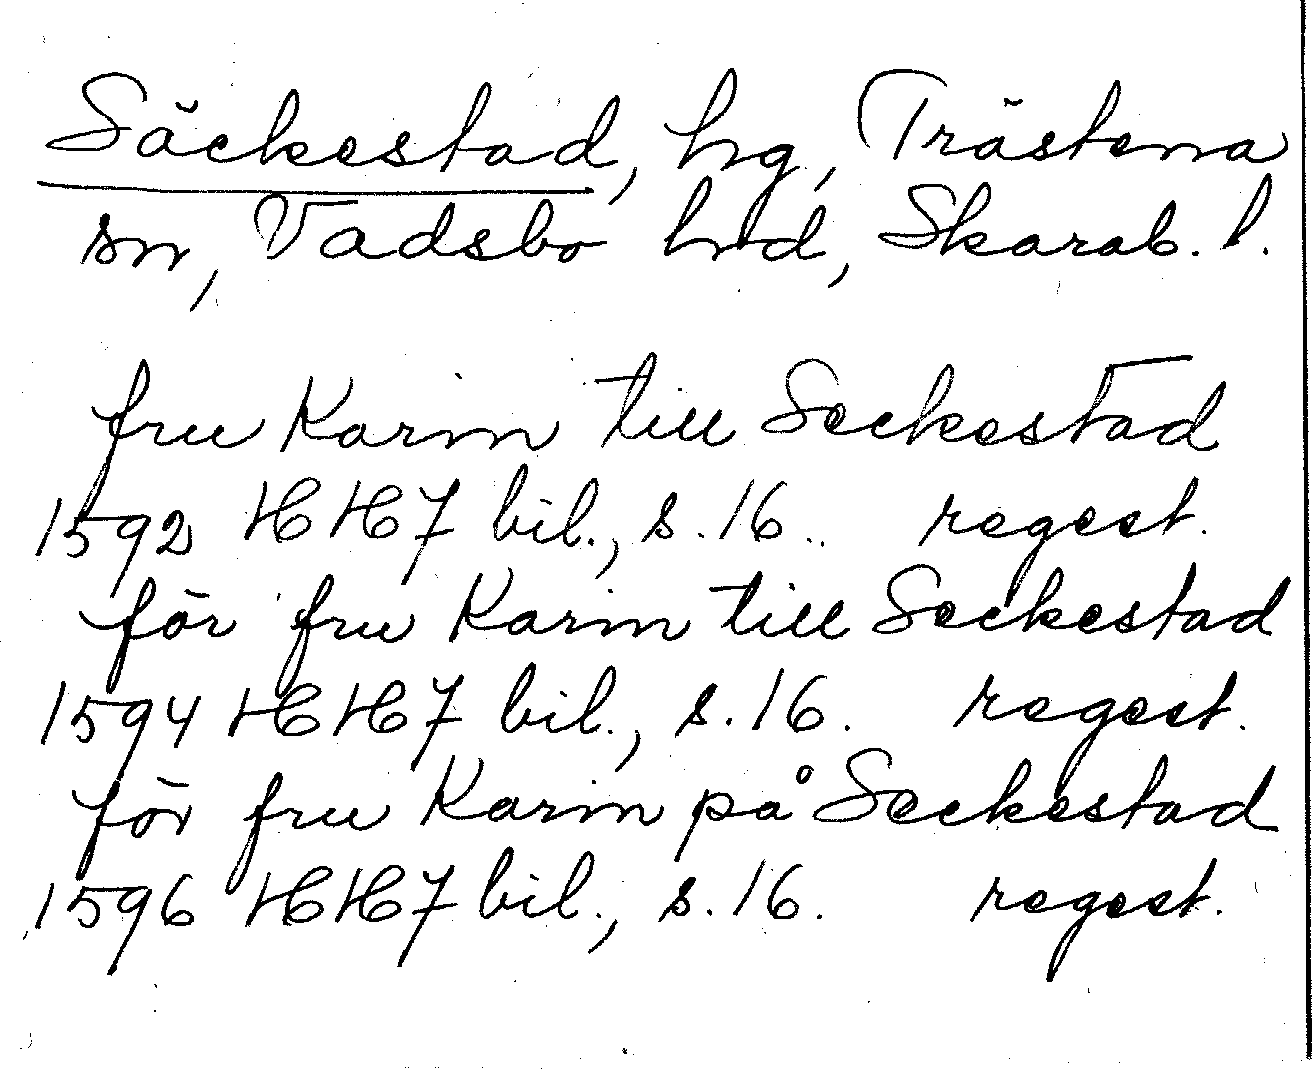 Säckestad, hg, Trästena
sn, Vadsbo hd, Skarab. l.
fru Karin till Seckestad
1592 HH7 bil., s. 16. regest.
för fru Karin till Seckestad
1594 HH7 bil., s. 16. regest.
för fru Karin på Seckestad
1596 HH7 bil., s. 16. regest.